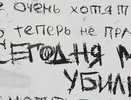 е очень хотят
о теперь не пра
Сегодня м
убили